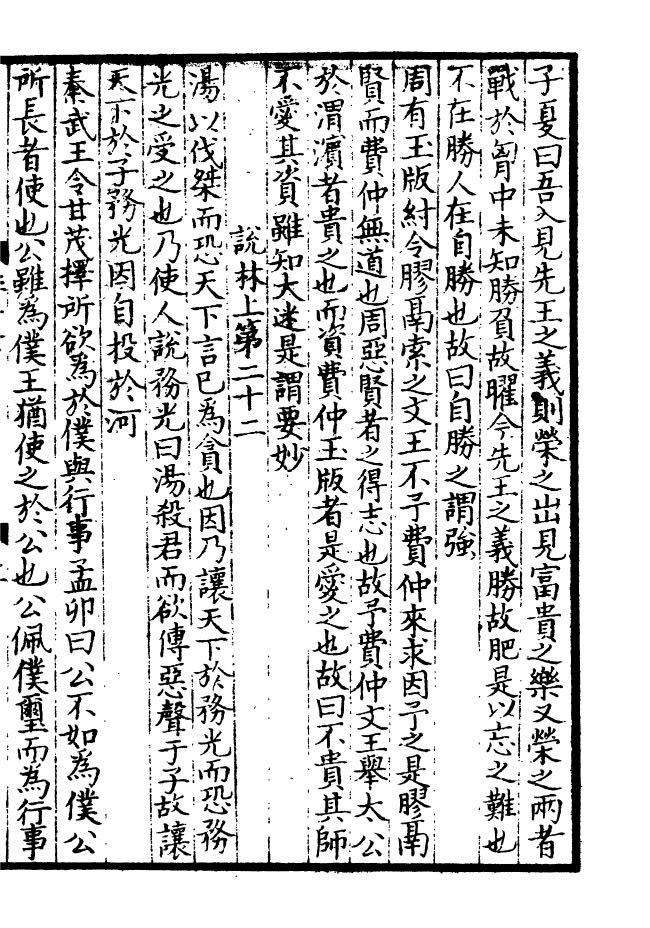 子夏曰吾入見先王之義則榮之出見富貴之樂又榮之兩者
戰於胷中未知勝負故臞今先王之義勝故肥是以志之難也
不在勝人在自勝也故曰自勝之謂強
周有玉版紂令膠鬲索之文王不予費仲來求因予之是膠鬲
賢而費仲無道也周惡賢者之得志也故予費仲文王舉太公
於渭濵者貴之也而資費仲玉版者是愛之也故曰不貴其師
不愛其資雖知大迷是謂要妙
說林上第二十二
湯以伐桀而恐天下言已為貪也因乃讓天下於務光而恐務
光之受之也乃使人說務光曰湯殺君而欲傳惡聲于子故讓
天下於子務光因自投於河
秦武王令甘茂擇所欲為於僕與行事孟卯曰公不如為僕公
所長者使也公雖為僕王猶使之於公也公佩僕璽而為行事